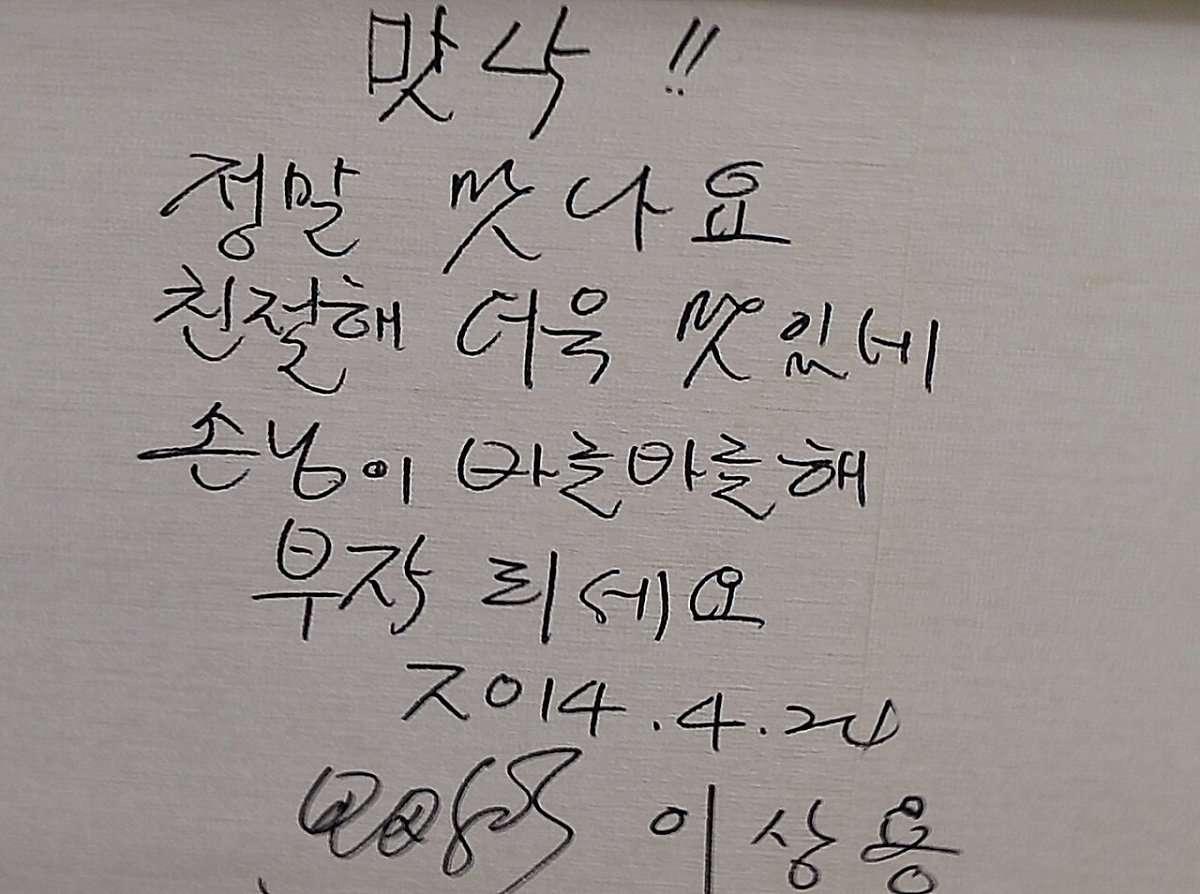 맛삭 !!
정말 맛나요
친절해 더욱 맛있네
손님이 바글바글해
부자 되세요
2014.4.24
이상용